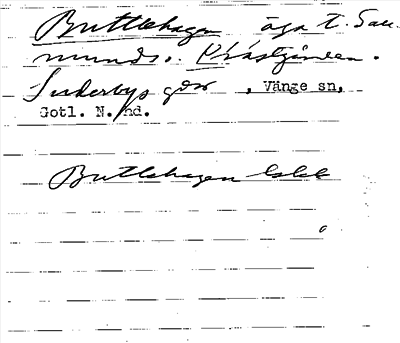 Buttlehagen äga t. Sau-
munds o. Prästgården.
Suderbys gdr, Vänge sn,
Gotl. N. hd.
Buttlehagen